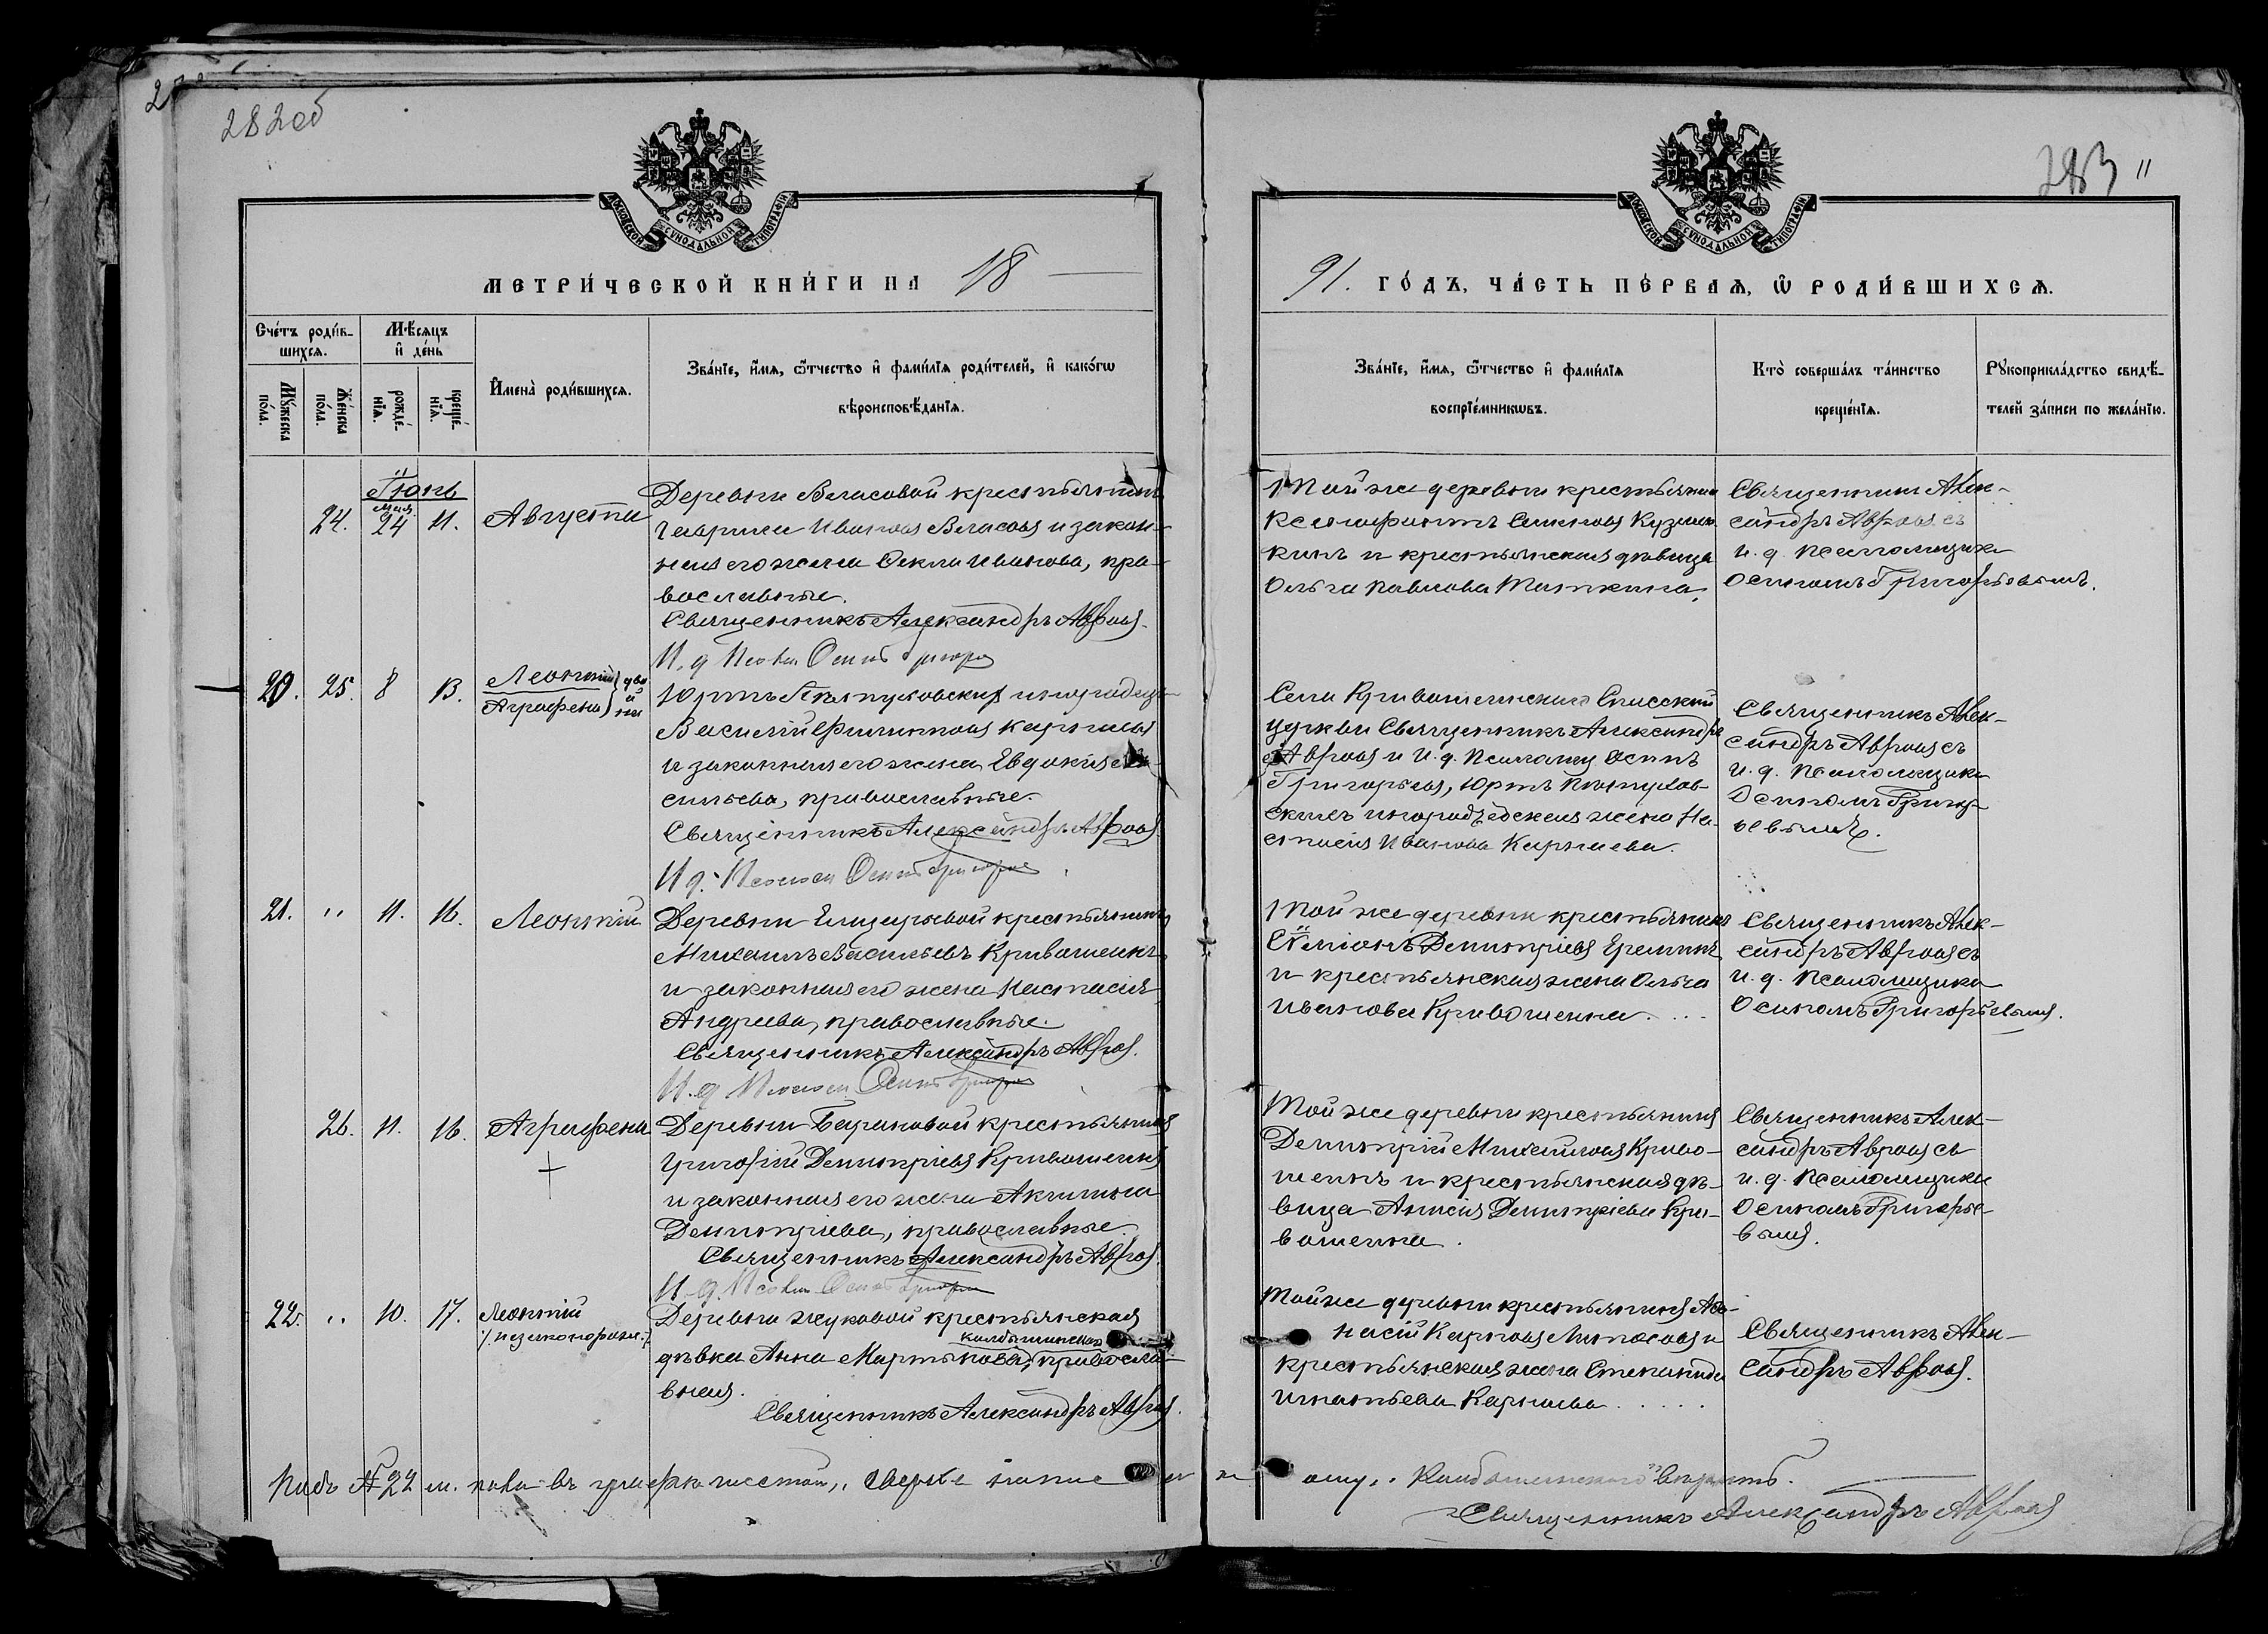 282об
283
МОСКОВСКОЙ СѴНОДАЛЬНОЙ ТИПОГРАФІИ
МОСКОВСКОЙ СѴНОДАЛЬНОЙ ТИПОГРАФІИ
МЕТРИ́ЧЕСКОЙ КНИ́ГИ НА 18
91. ГО́ДЪ, ЧА́СТЬ ПЕ́РВАѦ, Ѿ РОДИ́ВШИХСѦ.
Сче́тъ роди́в-
шихсѧ.
Мѣ́сяцъ
и҆ де́нь
Мꙋ́жеска по́ла.
Же́нска по́ла.
рожде́-
нїѧ.
креще́-
нїѧ.
И҆мена̀ роди́вшихсѧ.
Зва́нїе, и҆́мѧ, ѻ҆́тчество и҆ фами́лїѧ роди́телей, и҆ како́гѡ
вѣроисповѣ́данїѧ.
Зва́нїе, и҆́мѧ, ѻ҆́тчество и҆ фами́лїѧ
воспрїе́мникѡвъ.
Кто̀ соверша́лъ та́инство
креще́нїѧ.
Рꙋкоприкла́дство свидѣ́-
телей за́писи по жела́нїю.
Іюнь
мая
24. 24 11. Августа
Деревни Власовой крестьянинъ
Гавріилъ Ивановъ Власовъ и закон-
ная его жена Ѳекла Иванова, пра-
вославные.
Священникъ Александръ Авровъ.
И. д. Псалом Осипъ Григорь
Той же деревни крестьянинъ
Ксенофонтъ Семеновъ Кузмин-
кинъ и крестьянская дѣвица
Ольга Павлова
Священникъ Алек-
сандръ Авровъ съ
и. д. псаломщика
Осипомъ Григорьевымъ.
20. 25. 8 13. Леонтій
Агрофена двойни
Юртъ инородецъ
Василій Филиповъ Карнаевъ
и законная его жена Евдокія Ва-
сильева, православные.
Священникъ Александръ Авровъ
И. д. Псалом Осипъ Григорье
Села Кривошеинскаго Спасской
церкви Священникъ Александръ
Авровъ и И. д. Псаломщ Осипъ
Григорьевъ, Юртъ
скихъ инородческая жена На-
стасія Иванова Карнаева.
Священникъ Алек-
сандръ Авровъ съ
и. д. псаломщика
Осипомъ Григорь-
евымъ.
21. " 11. 16. Леонтій
Деревни Елизарьевой крестьянинъ
Михаилъ Васильевъ Кривошеинъ
и законная его жена Настасія
Андреева, православные.
Священникъ Александръ Авровъ.
И. д. Псалом Осипъ Григорье
Той же деревни крестьянинъ
Симіонъ Димитріевъ Ереминъ
и крестьянская жена Ольга
Иванова Кривошеина. . . .
Священникъ Алек-
сандръ Авровъ съ
и. д. Псаломщика
Осипомъ Григорьевымъ.
26. 11. 16. Агрифена
Деревни Барановой крестьянинъ
Григорій Димитріевъ Кривошеинъ
и законная его жена Акилина
Димитріева, православные.
Священникъ Александръ Авровъ.
И. д. Псалом Осипъ Григорье
Той же деревни крестьянинъ
Димитрій Михайловъ Криво-
шеинъ и крестьянская дѣ-
вица Анисія Димитріева Кри-
вошеина.
Священникъ Алек-
сандръ Авровъ съ
и. д. Псаломщика
Осипомъ Григорье-
вымъ.
22. " 10. 17. Леонтій
/: незаконорожд. :/
Деревни Жуковой крестьянская
дѣвка Анна Мартынова, правосла-
вная.
Священникъ Александръ Авровъ.
Той же деревни крестьянинъ Аѳа-
насій Карповъ и
крестьянская жена Степанида
Игнатьева Карнаева . . . . .
Священникъ Алек-
сандръ Авровъ.
Подъ № 22 м. пола въ графѣ сверхъ
вѣрить.
Священникъ Александръ Авровъ